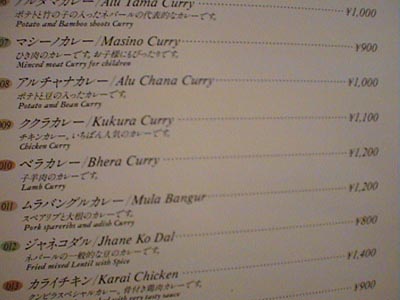 アルタマカレー/Alu Tama Curry ¥1,000
ポテトと竹の子の入ったネパールの代表的なカレーです。
Potato and Bamboo shoots Curry
マシーノカレー/Masino Curry ¥900
ひき肉のカレーです。お子様にもぴったりです。
Minced meat Curry for children
08 アルチャナカレー/Alu Chana Curry ¥1,000
ポテトと豆の入ったカレーです。
Potato and Bean Curry
009 ククラカレー/Kukura Curry ¥1,100
チキンカレー。いちばん人気のカレーです。
Chicken Curry
010 ベラカレー/Bhera Curry ¥1,200
子羊肉のカレーです。
Lamb Curry
011 ムラバングルカレー/Mula Bangur ¥1,200
スペアリブと大根のカレーです。
Pork spareribs and adish Curry
012 ジャネコダル/Jhane Ko Dal ¥800
ネパールの一般的な豆のカレーです。
Fried mixed Lentil with Spice
013 カライチキン/Karai Chicken ¥1,400
クンビラスペシャルカレー。骨付き鶏肉カレーです。
with very tasty sauce ¥900